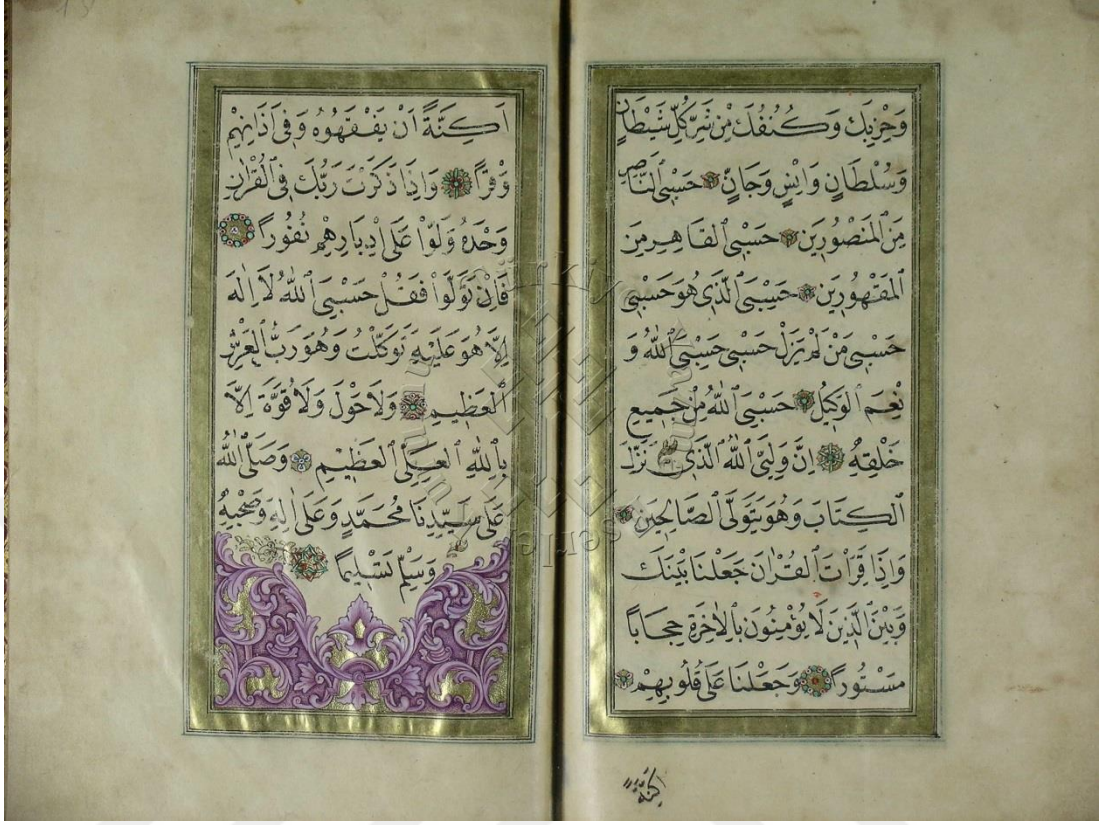 وَحِزْبِكَ وَكُنُفِكَ مِنْ شَرِّ كُلِّ شَيْطَانٍ
وَسُلْطَانٍ وَاِنْسٍ وَجَانٍّ حَسْبِىَ النَّاصِرُ
مِنَ الْمَنْصُورِينَ حَسْبِىَ الْقَاهِرُ مِنَ
الْمَقْهُورِينَ حَسْبِىَ الَّذِى هُوَ حَسْبِى
حَسْبِى مَنْ لَمْ يَزَلْ حَسْبِى حَسْبِىَ اللّٰهُ وَ
نِعْمَ الْوَكِيلُ حَسْبِىَ اللّٰهُ مِنْ جَمِيعِ
خَلْقِهِ اِنَّ وَلِيِّىَ اللّٰهُ الَّذِى نَزَّلَ
الْكِتَابَ وَهُوَ يَتَوَلَّى الصَّالِحِينَ
وَاِذَا قَرَأْتَ الْقُرْاٰنَ جَعَلْنَا بَيْنَكَ
وَبَيْنَ الَّذِينَ لَا يُؤْمِنُونَ بِالْاٰخِرَةِ حِجَابًا
مَسْتُورًا وَجَعَلْنَا عَلٰى قُلُوبِهِمْ
اَكِنَّةً
اَكِنَّةً اَنْ يَفْقَهُوهُ وَفِى اٰذَانِهِمْ
وَقْرًا وَاِذَا ذَكَرْتَ رَبَّكَ فِى الْقُرْاٰنِ
وَحْدَهُ وَلَّوْا عَلٰى اَدْبَارِهِمْ نُفُورًا
فَاِنْ تَوَلَّوْا فَقُلْ حَسْبِىَ اللّٰهُ لَا اِلٰهَ
اِلَّا هُوَ عَلَيْهِ تَوَكَّلْتُ وَهُوَ رَبُّ الْعَرْشِ
الْعَظِيمِ وَلَا حَوْلَ وَلَا قُوَّةَ اِلَّا
بِاللّٰهِ الْعَلِىِّ الْعَظِيمِ وَصَلَّى اللّٰهُ
عَلٰى سَيِّدِنَا مُحَمَّدٍ وَعَلٰى اٰلِهِ وَصَحْبِهِ
وَسَلِّمْ تَسْلِيمًا